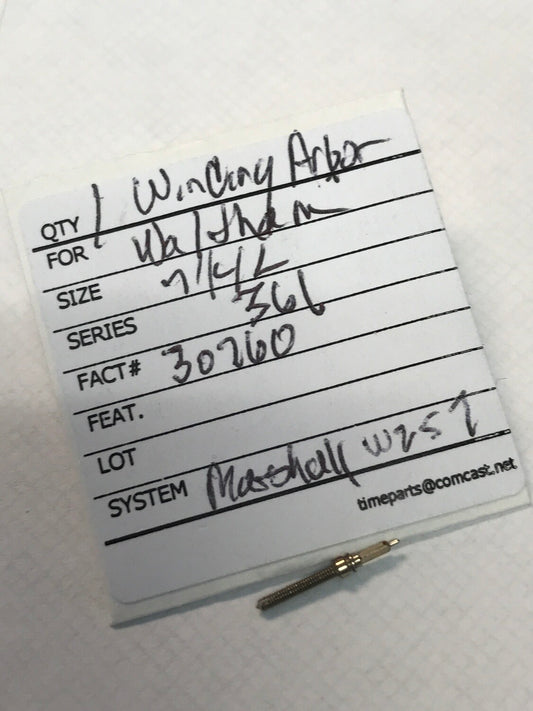 QTY 1 Winding Arbor
FOR Waltham
SIZE 7 1/4 L
SERIES 366
FACT# 30760
FEAT.
LOT
SYSTEM Marshall W257
timeparts@comcast.net